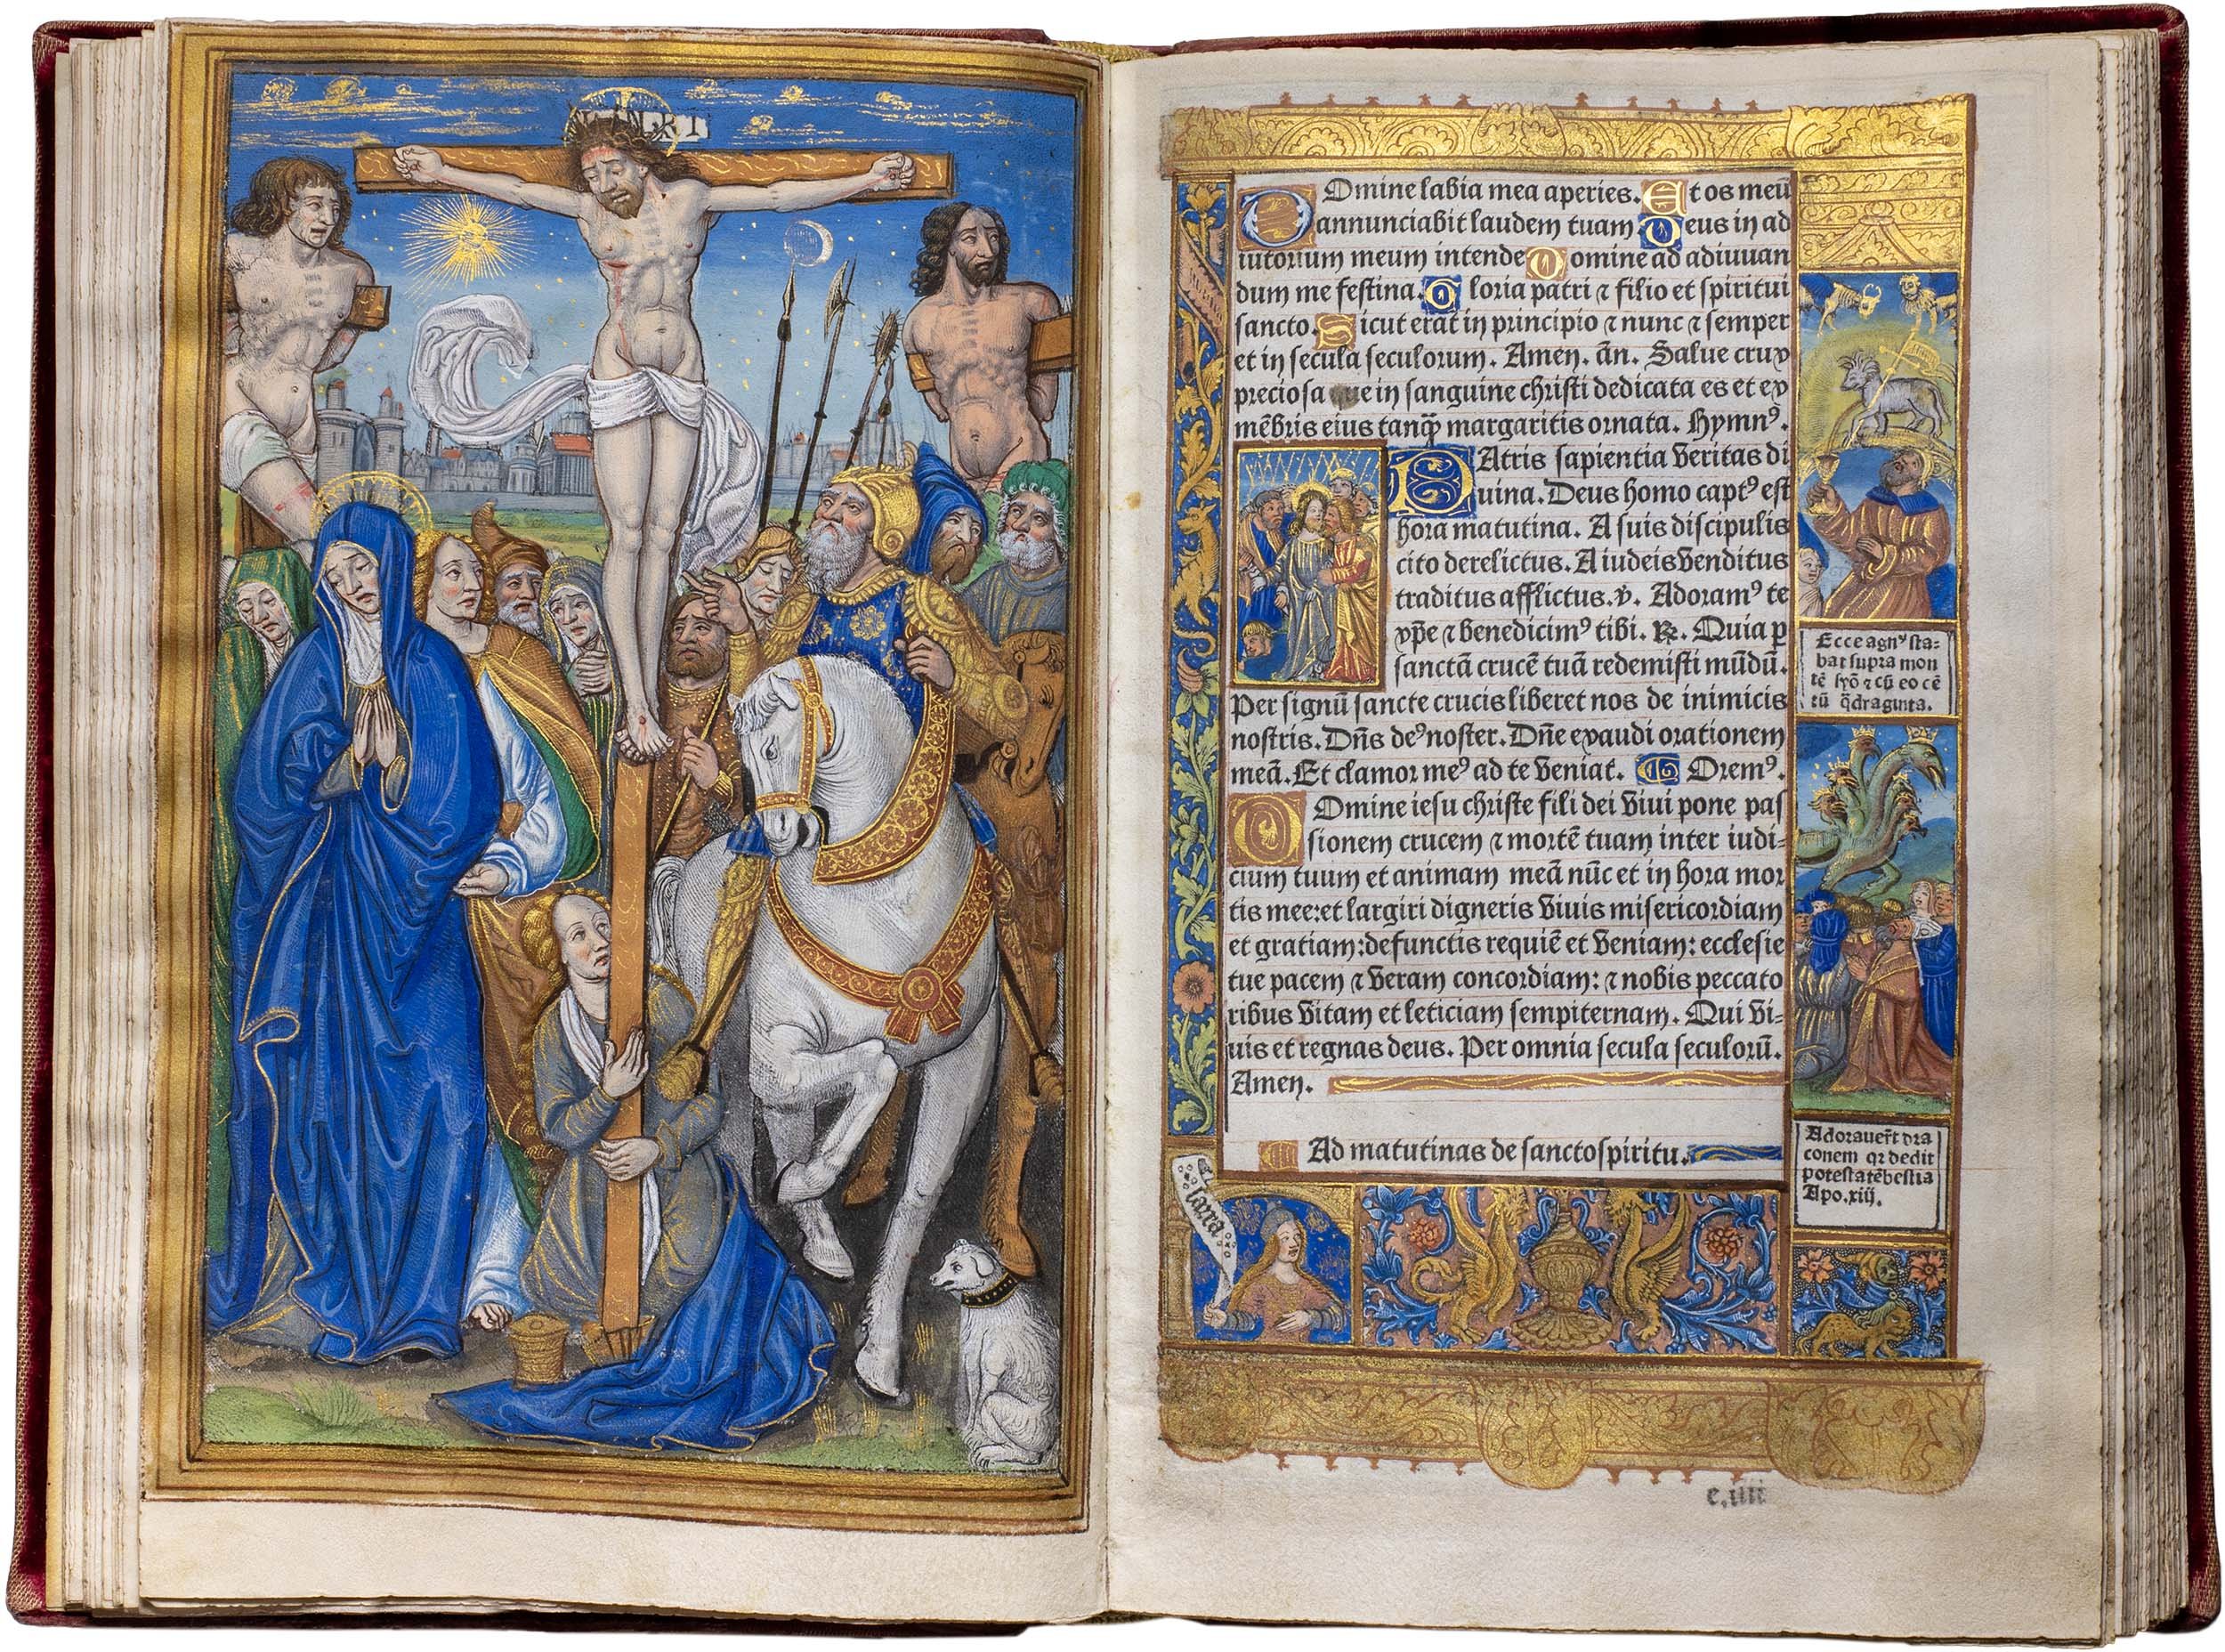 INRI
Domine labia mea aperies. Et os meū
annunciabit laudem tuam Deus in ad
iutorium meum intende Domine ad adiuuan
dum me festina. Gloria patri ⁊ filio et spiritui
sancto. Sicut erat in principio ⁊ nunc ⁊ semper
et in secula seculorum. Amen. añ. Salue crux
preciosa que in sanguine christi dedicata es et ex
mēbris eius tanq̄ margaritis ornata. Hymnꝰ.
PAtris sapientia veritas di
uina. Deus homo captꝰ est
hora matutina. A suis discipulis
cito derelictus. A iudeis venditus
traditus afflictus. ℣. Adoramꝰ te
xp̄e ⁊ benedicimꝰ tibi. ℟. Quia p
sanctā crucē tuā redemisti mūdū.
Per signū sancte crucis liberet nos de inimicis
nostris. Dn̄s deꝰ noster. Dn̄e exaudi orationem
meā. Et clamor meꝰ ad te veniat. Oremꝰ.
Domine iesu christe fili dei viui pone pas
sionem crucem ⁊ mortē tuam inter iudi=
cium tuum et animam meā nūc et in hora mor
tis mee: et largiri digneris viuis misericordiam
et gratiam: defunctis requiē et veniam: ecclesie
tue pacem ⁊ veram concordiam: ⁊ nobis peccato
ribus vitam et leticiam sempiternam. Qui vi=
uis et regnas deus. Per omnia secula seculorū.
Amen.
Ad matutinas de sancto spiritu.
Ecce agnꝰ sta=
bat supra mon
tē syō ⁊ cū eo cē
tū q̄draginta.
Adorauer̄t dra
conem qꝛ dedit
potestatē bestia
Apo. xiij.
e.iiii